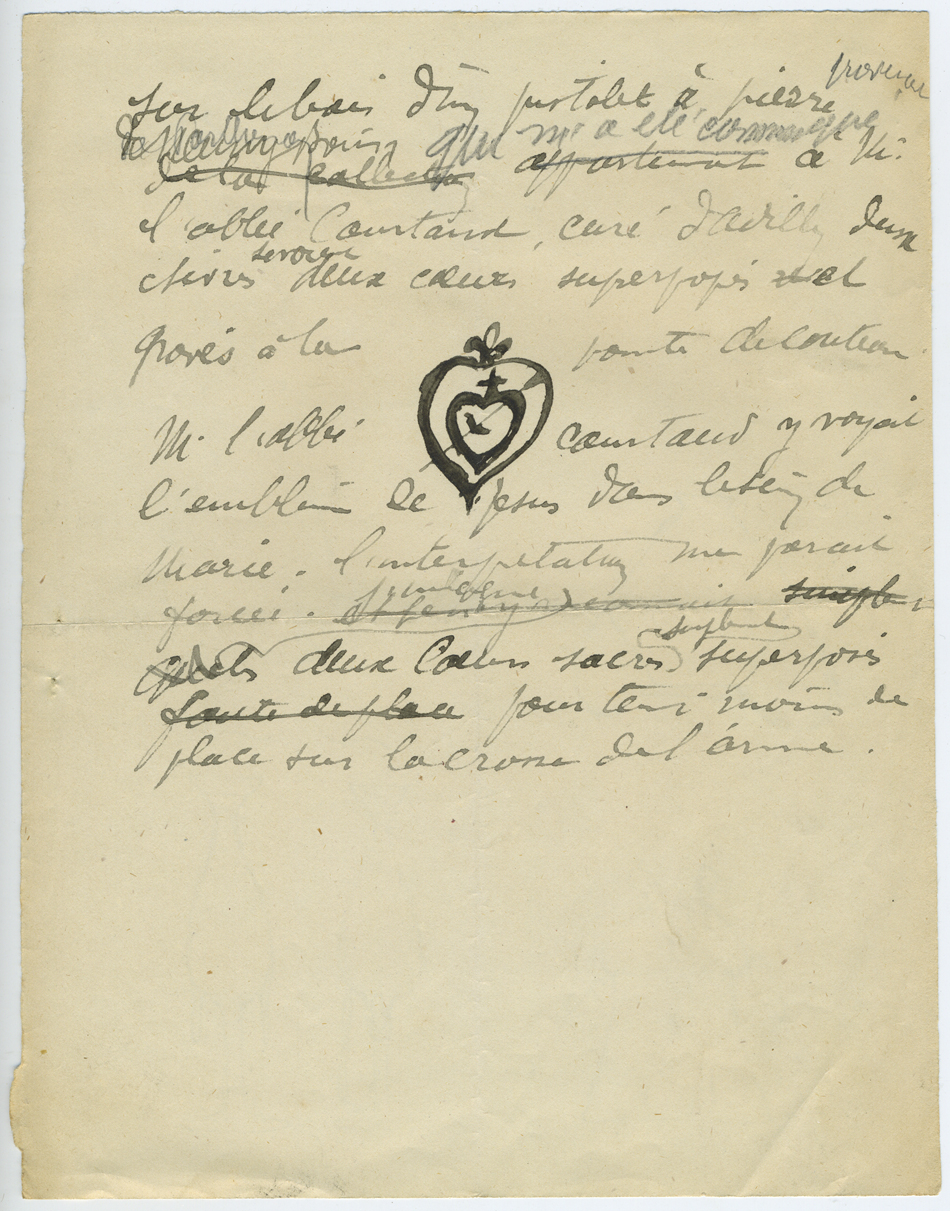 sur le bois d'un pistolet à pierre
qui m'a été communiqué
de la collection appartenant à M.
l'abbé Courtaud, curé d'availly deux
chivis deux cœurs superposés et
gravés à la pointe de couteau
M. l'abbé Courtaud y voyait
l'emblème de Jésus dans le sein de
Marie. l'interpretation me parait
forcée. simple
simplement
deux Cœurs sacrés superposés
faute de place pour tenir moins de
place sur la crosse de l'arme.